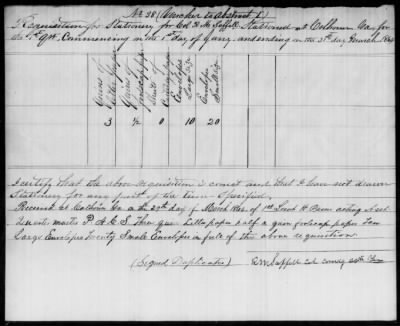 No 28 (Voucher to abstract 1)
Requisition for Stationery for Col Stationed at Calhoun Ga for
the 1st Qtr. Commencing on the 1st day of Jany. and ending on the 31st day of March
Quires of
Letter Paper
Quires of
foolscap paper
Envelopes
Large size
Envelopes
Small size
3 ½ 0 10 20
I certify that the above requisition is correct and that I have not drawn
Stationery for any part of the time Specified.
Received at Calhoun Ga the 29th day of March of 1st Lieut H acting Asst
Quarter master P. A. C. S. Three quires Letter paper half a quire foolscap paper Ten
Large Envelopes Twenty Small Envelopes in full of the above requisition
(Signed Duplicates) Col